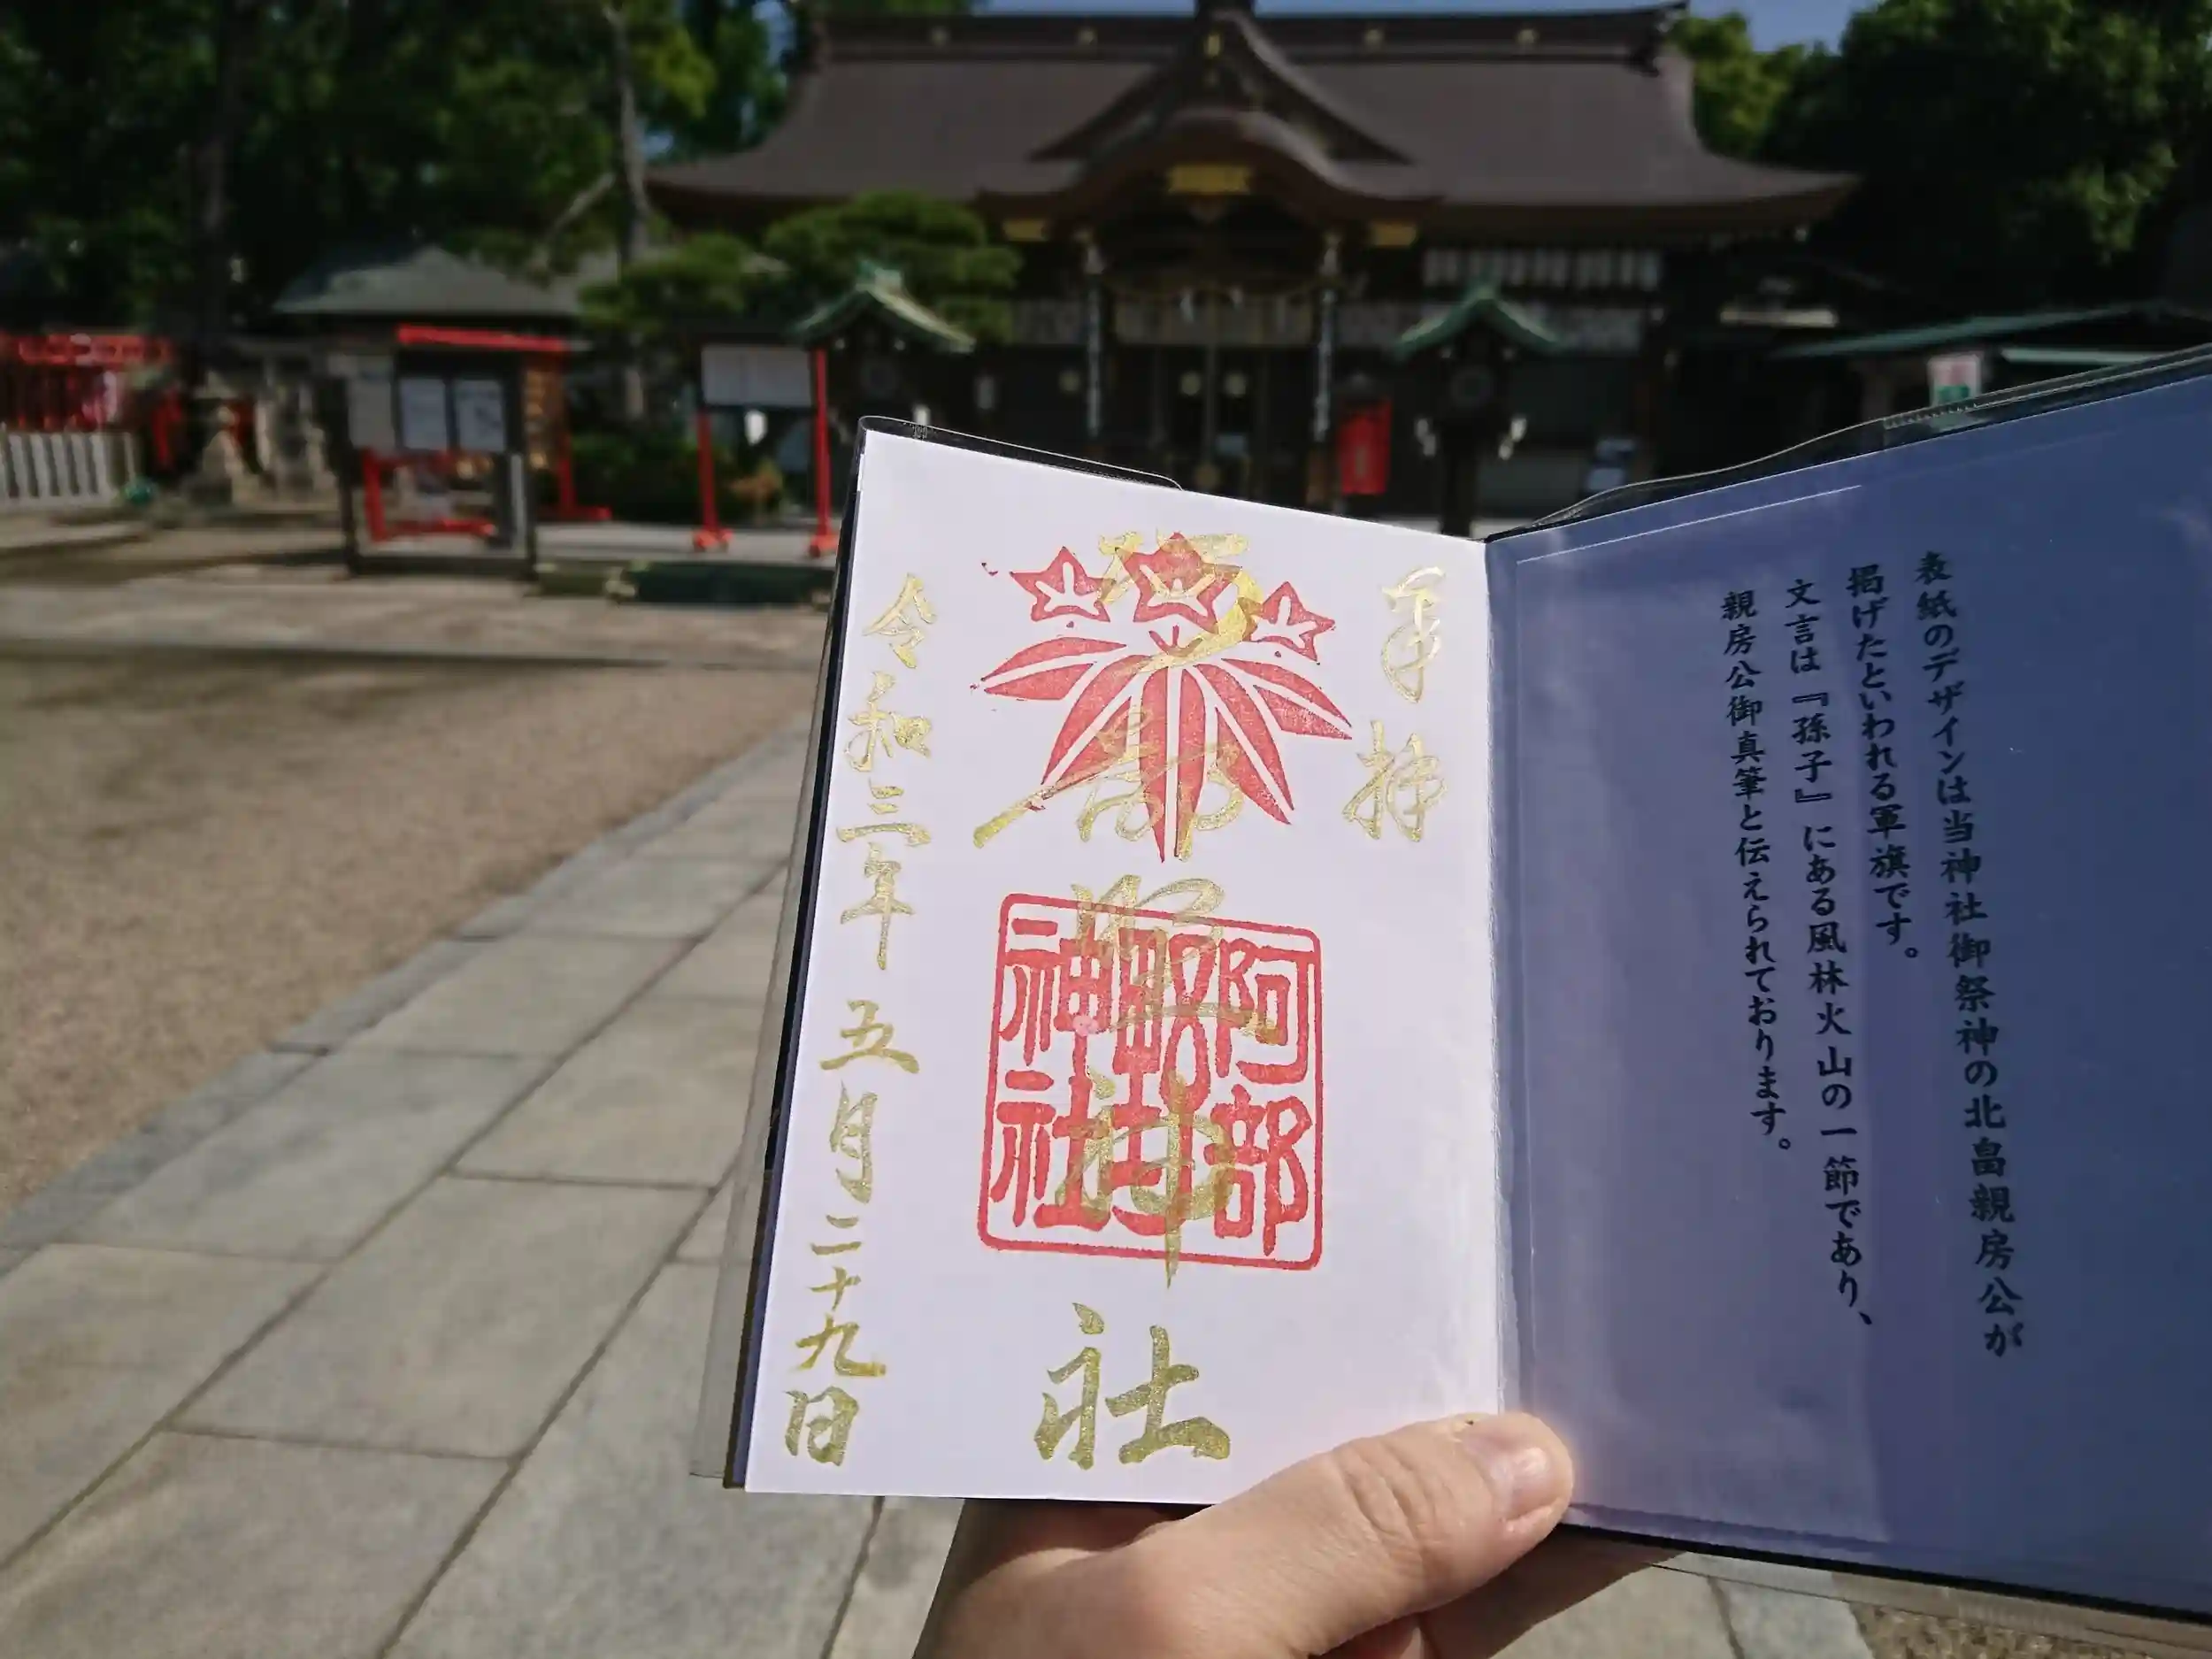 表紙のデザインは当神社御祭神の北畠親房公が
掲げたといわれる軍旗です。
文言は『孫子』にある風林火山の一節であり、
親房公御真筆と伝えられております。
奉拝
阿部野神社
阿部
野
神社
令和三年 五月二十九日